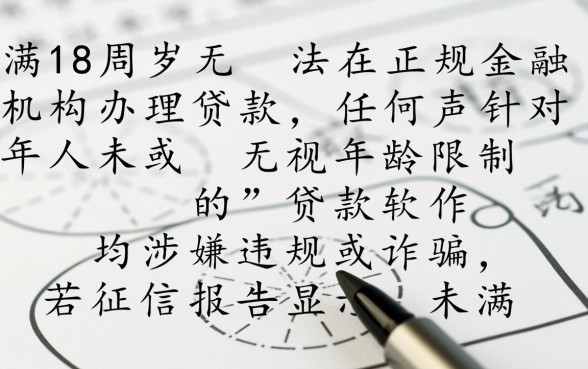 满18周岁无 法在正规金融
机构办理贷款，任何声针对
年人未或 无视年龄限制
的”贷款软作
均涉嫌违规或诈骗，
若征信报告显 未满